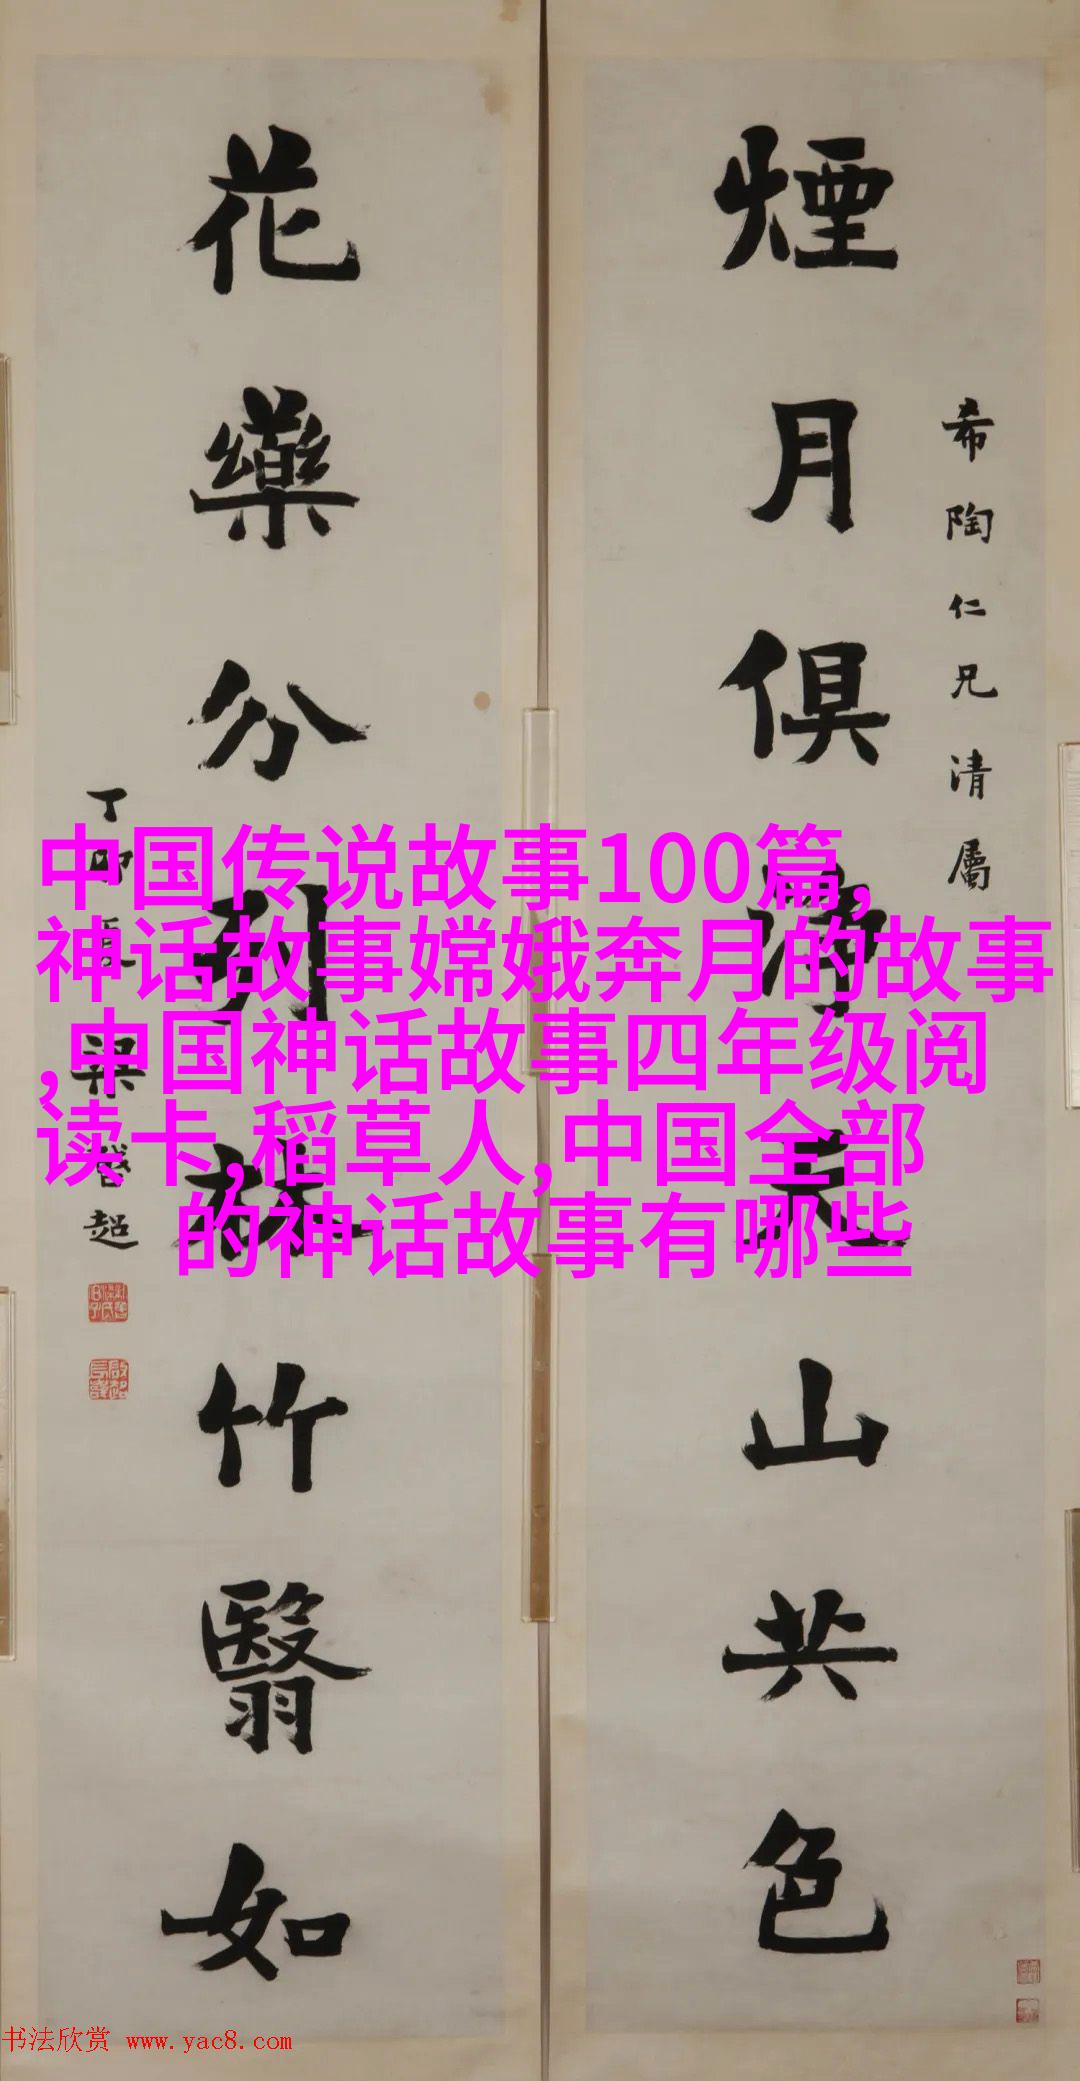 煙月俱清 山共色
希陶仁兄清属
花藥分列 竹翳如
丁卯 梁啓超
中国传说故事100篇,
神话故事嫦娥奔月的故事
,中国神话故事四年级阅
读卡,稻草人,中国全部
的神话故事有哪些
书法欣赏 www.yac8.com